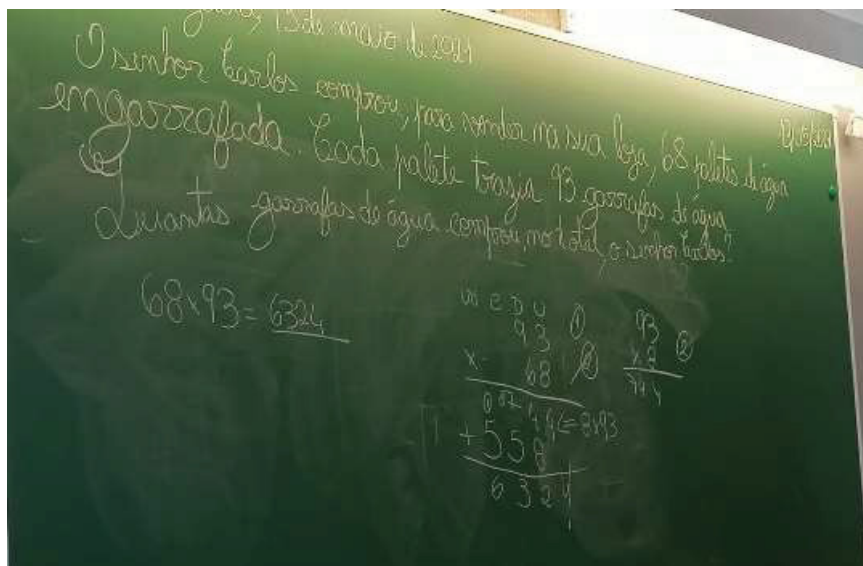 13 de maio de 2021
O senhor Carlos comprou, para vender na sua loja, 68 paletes de água
engarrafada. Cada palete trazia 93 garrafas de água.
Quantas garrafas de água comprou, no total, o senhor Carlos?
68x93 = 6324
93 1
x 68
744 = 8x93
+ 558
6324
93 2
x 8
744